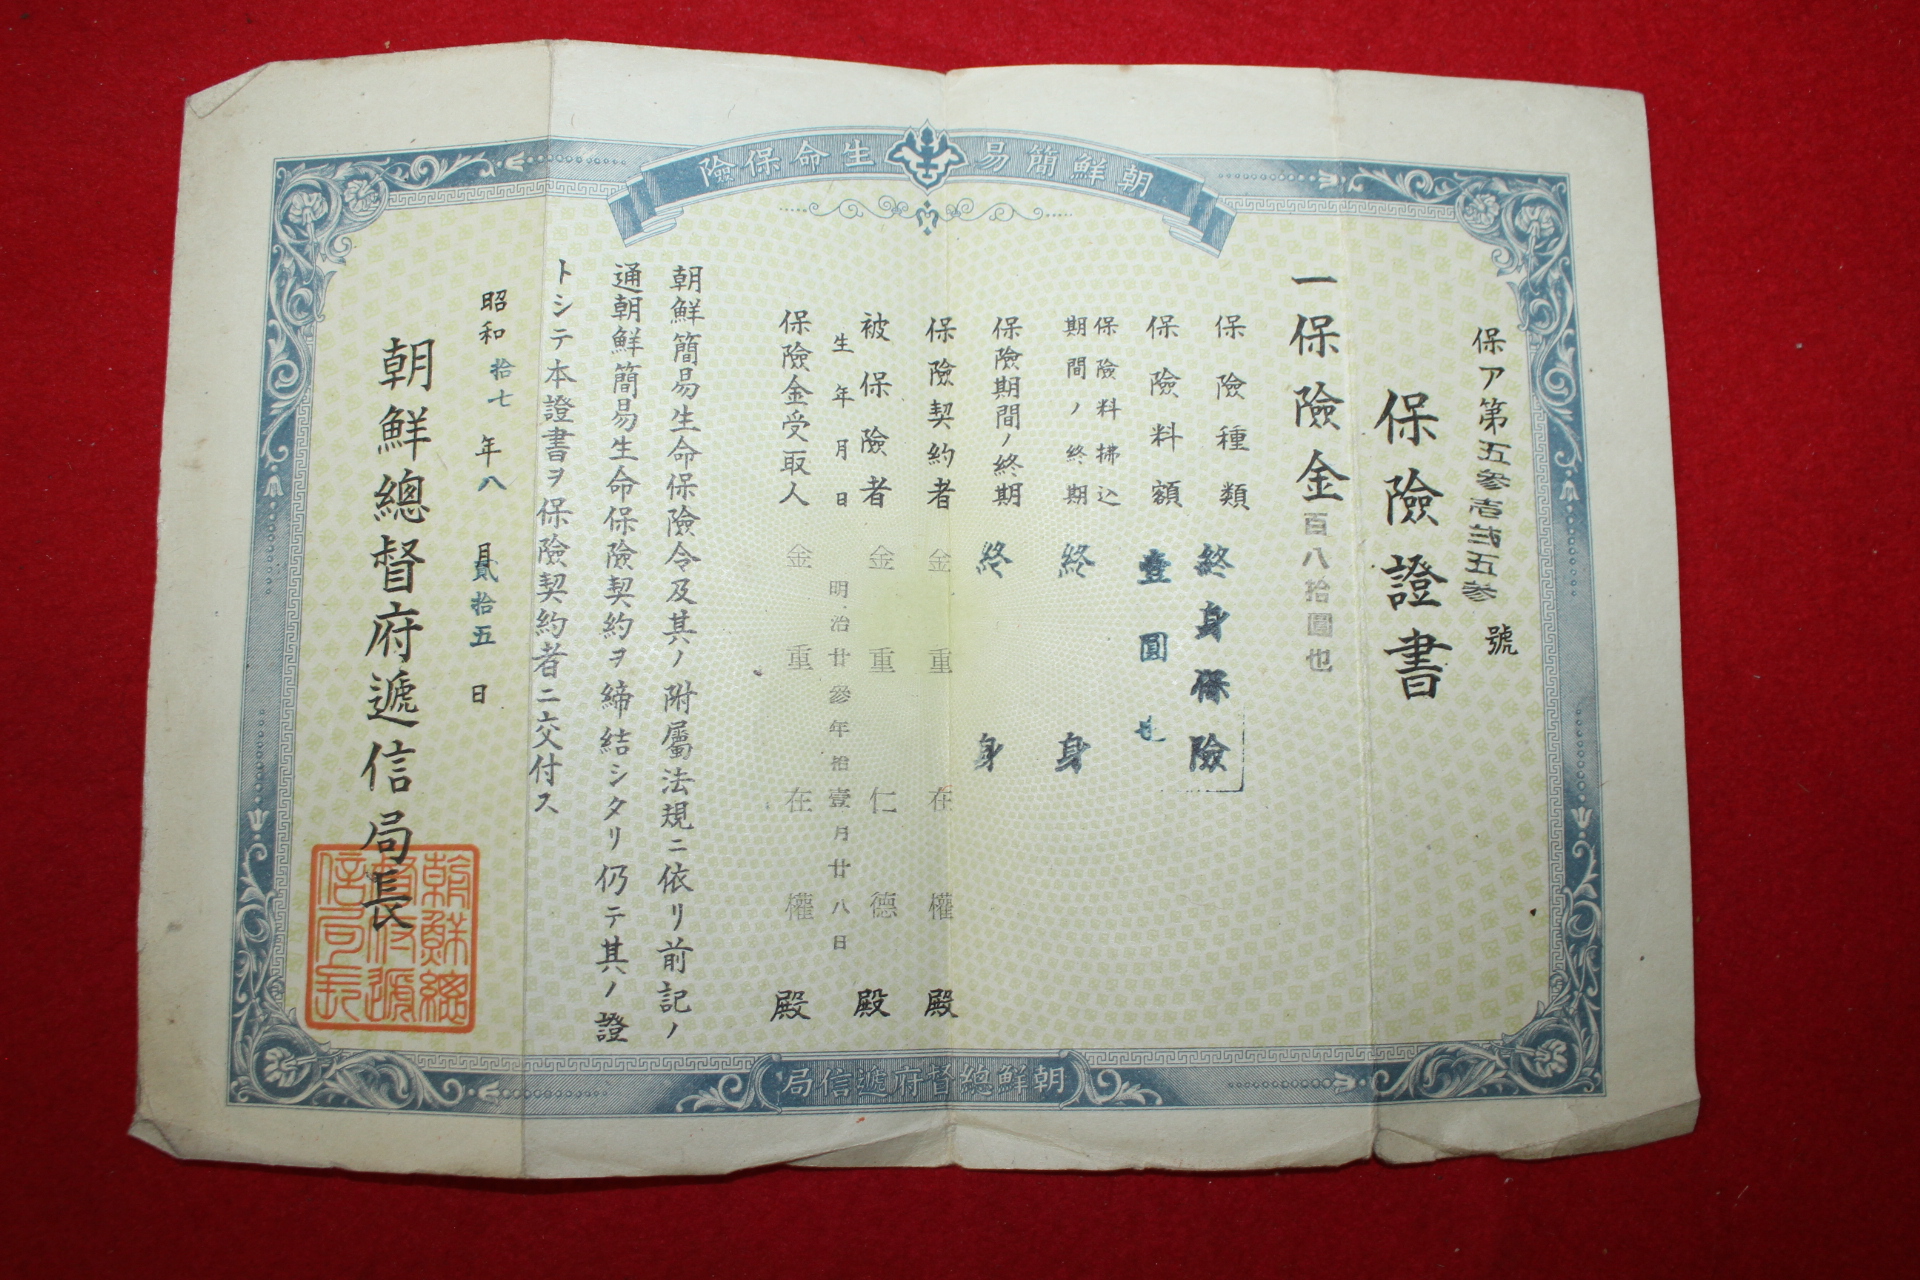 朝鮮簡易生命保險
保ア第五參壱貳五參號
保險證書
一保險金百八拾圓也
保險種類 終身保險
保險料額 壹圓也
保險料拂込
期間ノ終期 終身
保險期間ノ終期 終身
保險契約者 金重在權殿
被保險者 金重仁德殿
生年月日 明治廿參年拾壹月廿八日
保險金受取人 金重在權殿
朝鮮簡易生命保險令及其ノ附屬法規ニ依リ前記ノ
通朝鮮簡易生命保險契約ヲ締結シタリ仍テ其ノ證
トシテ本證書ヲ保險契約者ニ交付ス
昭和拾七年八月貳拾五日
朝鮮總督府遞信局長
朝鮮總督府遞信局長
朝鮮總督府遞信局